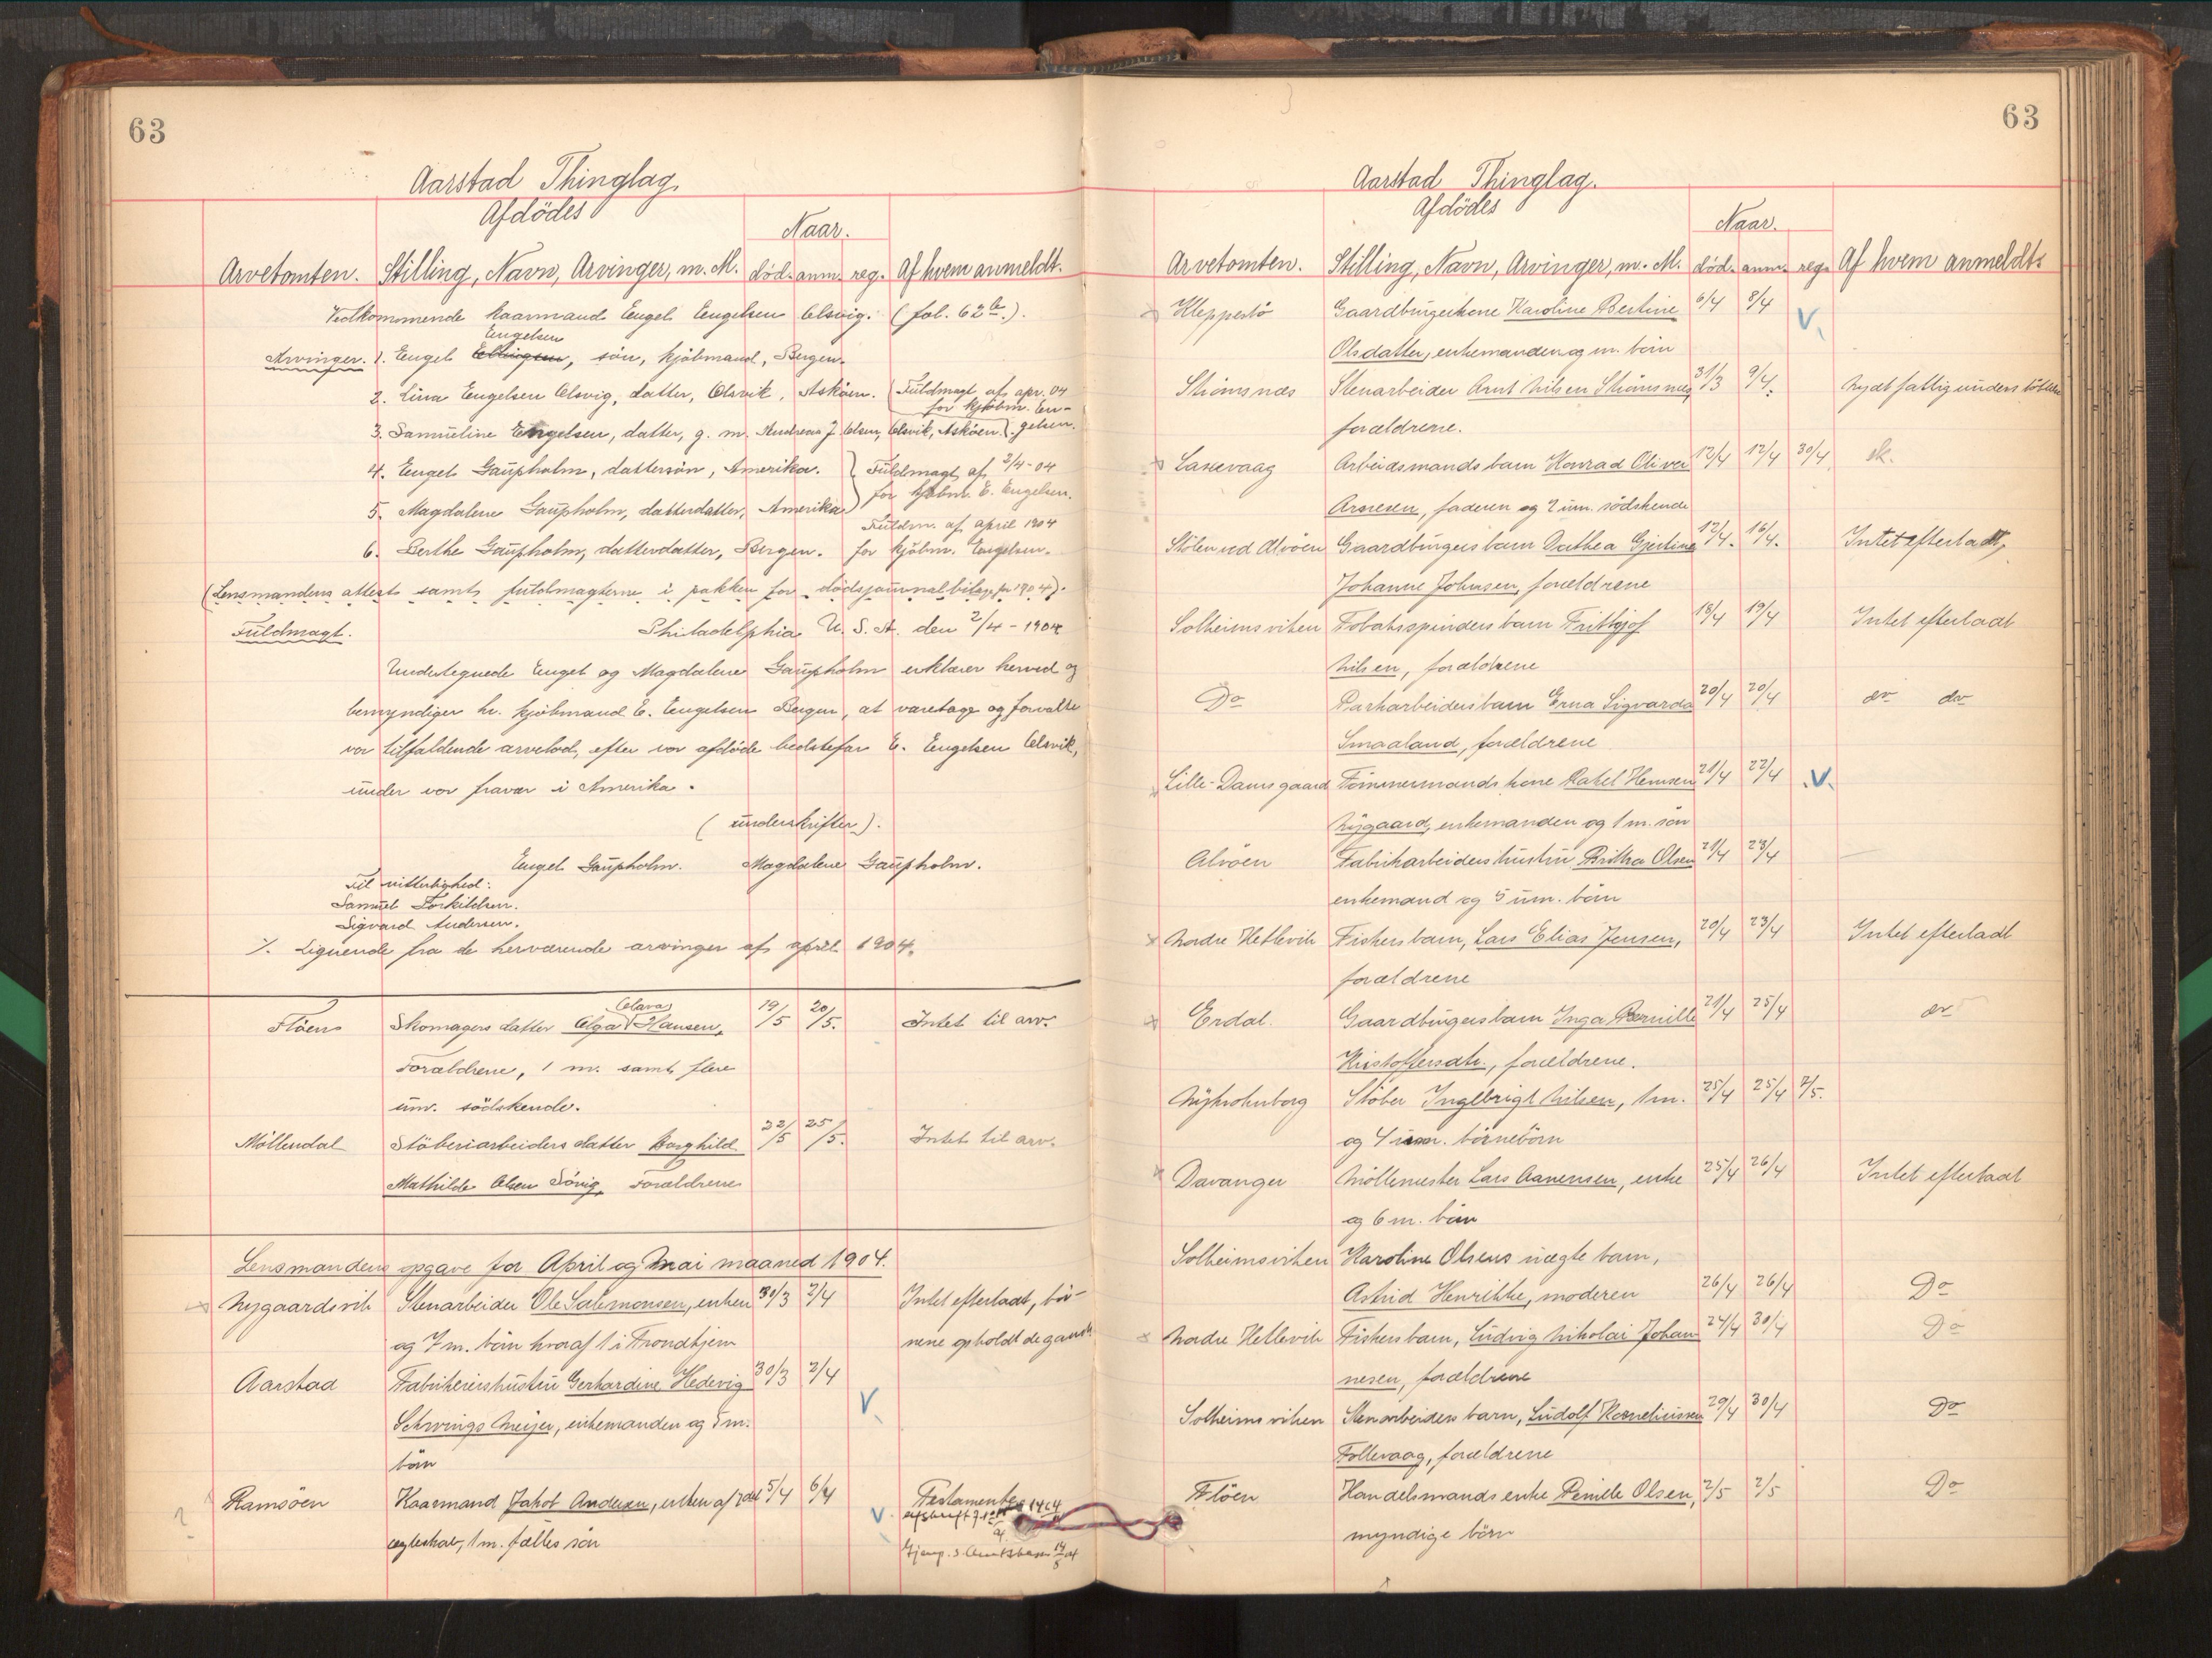 63
Aarstad Thinglag.
Afdödes
Naar.
Arvetomten. Stilling, Navn, Arvinger, m. M. död. anm. reg. Af hvem anmeldt.
Vedkommende kaarmand Engel Engelsen Olsvig. (fol. 62 b.).
Engelsen
Arvinger. 1. Engel , sön, kjöbmand, Bergen.
2. Lina Engelsen Olsvig, datter, Olsvik, Asköen. Fuldmagt af apr. 04
for kjöbm. En-
3. Samueline Engelsen, datter, g. m. Andreas J. Olsen, Olsvik, Asköen. gelsen.
4. Engel Gaupholm, dattersön, Amerika. Fuldmagt af 2/4-04
for kjöbm. E. Engelsen.
5. Magdalene Gaupholm, datterdatter, Amerika
Fuldm. af april 1904
6. Berthe Gaupholm, datterdatter, Bergen. for kjöbm. Engelsen.
(Lensmandens attest samt fuldmagterne i pakken for dödsjournalbilag for 1904).
Fuldmagt. Philadelphia U. S. A. den 2/4-1904
Undertegnede Engel og Magdalene Gaupholm erklærer herved og
bemyndiger hr. kjöbmand E. Engelsen Bergen, at varetage og forvalte
vor tilfaldende arvelod, efter vor afdöde bedstefar E. Engelsen Olsvik,
under vor fravær i Amerika.
(underskrifter).
Engel Gaupholm. Magdalene Gaupholm.
Til vitterlighed:
Samuel Torkildsen.
Sigvard Andersen.
/. Lignende fra de herværende arvinger af april 1904.
Olava
Flöen Skomagers datter Olga Hansen, 19/5 20/5. Intet til arv.
Forældrene, 1 m. samt flere
um. södskende.
Möllendal Stöberiarbeiders datter Borghild 22/5 25/5. Intet til arv.
Mathilde Olsen Sörig, Forældrene
Lensmandens opgave for April og Mai maaned 1904.
Nygaardsvik Stenarbeider Ole Salomonsen, enken 30/3 2/4 Intet efterladt, bör-
og 7 m. börn hvoraf 1 i Trondhjem nene opholdt de gamle
Aarstad Fabrikeiershustru Gerhardine Hedevig 30/3 2/4
Schwings Meijer, enkemanden og 5 m. V
börn
Ramsöen Kaarmand Jakob Andersen, enken af 2det 5/4 6/4 V. Testamente
ægteskab, 1 m. fælles sön
63
Aarstad Thinglag.
Afdödes
Naar.
Arvetomten. Stilling, Navn, Arvinger, m. M. död. anm. reg. Af hvem anmeldt.
Kleppestö Gaardbrugerkone Karoline Bertine 6/4 8/4 V.
Olsdatter, enkemanden og m. börn
Strömsnæs Stenarbeider Arnt Nilsen Strömsnæs 31/3 9/4. Nydt fattigunderstöttelse
forældrene.
Laxevaag Arbeidsmands barn Konrad Oliver 12/4 12/4 30/4 sk.
Arnesen, faderen og 2 um. södskende
Stölen ved Alvöen Gaardbrugers barn Dathea Gjertine 12/4. 16/4. Intet efterladt,
Johanne Johnsen, forældrene
Solheimsviken Tobakspinders barn Frithjof 18/4 19/4 Intet efterladt
Nilsen, forældrene
Do Parkarbeiders barn Erna Sigvarda 20/4 20/4 do do
Smaaland, forældrene
Lille-Damsgaard Tömmermands kone Rakel Hemsen 21/4 22/4 .V.
Nygaard, enkemanden og 1 m. sön
Alvöen Fabrikarbeiders hustru Britha Olsen 21/4 23/4
enkemand og 5 um. börn
Nordre Hetlevik Fiskers barn, Lars Elias Jensen, 20/4 23/4 Intet efterladt
forældrene
Erdal. Gaardbrugers barn Inga Pernille 21/4 25/4 do
Kristoffersdtr., forældrene.
Nykrohnborg Stöber Ingebrigt Nilsen, 1 m. 25/4 25/4 2/5.
og 4 um. börnebörn
Davanger Möllemester Lars Aanensen, enke 25/4 26/4 Intet efterladt
og 6 m. börn
Solheimsviken Karoline Olsens uægte barn,
Astrid Henrikke, moderen 26/4 26/4 Do
Nordre Hetlevik Fiskers barn, Ludvig Nikolai Johan 24/4 30/4 Do
nesen, forældrene
Solheimsviken Stenarbeiders barn, Ludolf Korneliussen 29/4 30/4 Do
Follevaag, forældrene
Flöen Handelsmands enke Pernille Olsen, 2/5 2/5 Do
myndige börn